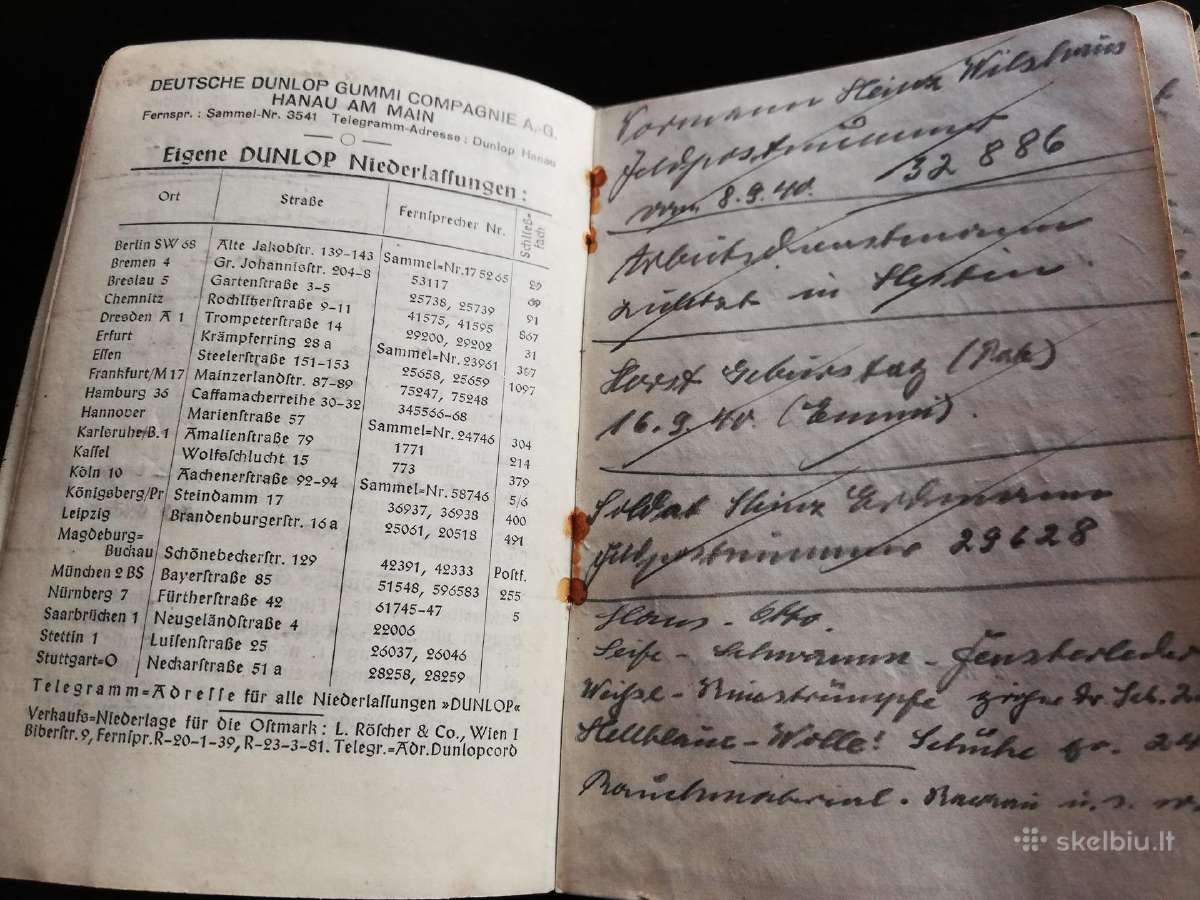 DEUTSCHE DUNLOP GUMMI COMPAGNIE A.-G.
HANAU AM MAIN
Fernspr.: Sammel-Nr. 3541 Telegramm-Adresse: Dunlop Hanau
Eigene DUNLOP Niederlaſſungen:
Ort Straße Fernſprecher Nr. Schließ=fach
Berlin SW 68 Alte Jakobſtr. 139-143 Sammel=Nr. 17 52 65 29
Bremen 4 Gr. Johannisſtr. 204-8 53117 69
Breslau 5 Gartenſtraße 3-5 25738, 25739 91
Chemnitz Rochlitzerſtraße 9-11 41575, 41595 867
Dresden A 1 Trompeterſtraße 14 29200, 29202 31
Erfurt Krämpferring 28 a Sammel=Nr. 23961 367
Eſſen Steelerſtraße 151-153 25658, 25659 1097
Frankfurt/M 17 Mainzerlandſtr. 87-89 75247, 75248
Hamburg 36 Caffamacherreihe 30-32 345566-68
Hannover Marienſtraße 57 Sammel=Nr. 24746 304
Karlsruhe/B. 1 Amalienſtraße 79 1771 214
Kaſſel Wolfsſchlucht 15 773 379
Köln 10 Aachenerſtraße 92-94 Sammel=Nr. 58746 5/6
Königsberg/Pr Steindamm 17 36937, 36938 400
Leipzig Brandenburgerſtr. 16 a 25061, 20518 491
Magdeburg=
Buckau Schönebeckerſtr. 129 42391, 42333 Poſtf.
München 2 BS Bayerſtraße 85 51548, 596583 255
Nürnberg 7 Fürtherſtraße 42 61745-47 5
Saarbrücken 1 Neugeländſtraße 4 22006
Stettin 1 Luiſenſtraße 25 26037, 26046
Stuttgart=O Neckarſtraße 51 a 28258, 28259
Telegramm=Adreſſe für alle Niederlaſſungen »DUNLOP«
Verkaufs=Niederlage für die Oſtmark: L. Röſcher & Co., Wien I
Biberſtr. 9, Fernſpr. R-20-1-39, R-23-3-81. Telegr.=Adr. Dunlopcord
Vormann Heinz
Feldpostnummer
vom 8.9.40. 32 886
Arbeitsdienstmann
zuletzt in
Horst Geburstag
16.9.40. (Emmi).
Soldat Heinz Erdmann
Feldpostnummer 29628
Hans - Otto.
Seife - Schwamm - Fensterleder
Weiße - Kniestrümpfe
Hellblaue - Wolle! Schuhe gr. 24
Rauchmaterial. u. s. w.
skelbiu.lt